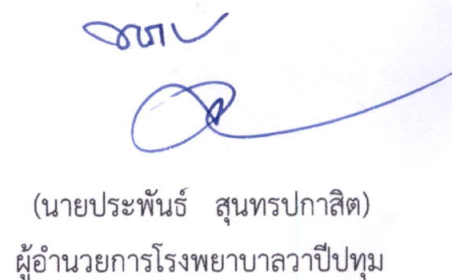 ทราบ
(นายประพันธ์ สุนทรปกาสิต)
ผู้อำนวยการโรงพยาบาลวาปีปทุม